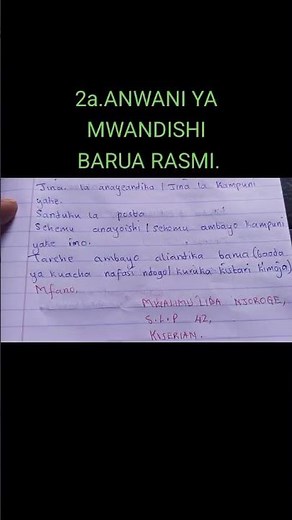 2a.ANWANI YA
MWANDISHI
BARUA RASMI.
Jina la anayeandika / Jina la Kampuni
yake.
Sanduku la posta
Sehemu anayoishi / sehemu ambayo kampuni
yake imo.
Tarehe ambayo aliandika barua (baada
ya kuacha nafasi ndogo / kuruka kustari kimoja)
Mfano,
MWALIMU LIDA NJOROGE,
S.L.P 42,
KISERIAN.